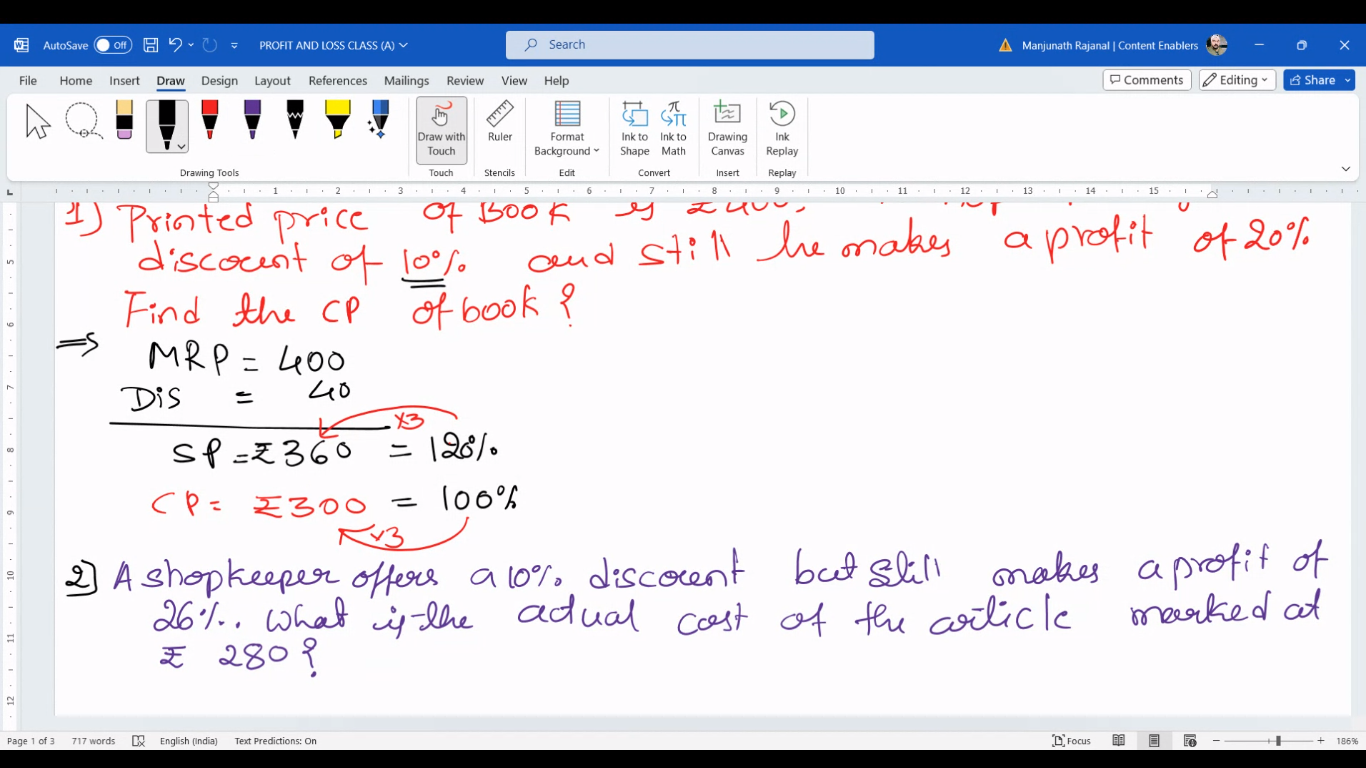 AutoSave Off PROFIT AND LOSS CLASS (A) Search Manjunath Rajanal | Content Enablers
File Home Insert Draw Design Layout References Mailings Review View Help Comments Editing Share
Draw with Touch Ruler Format Background Ink to Shape Ink to Math Drawing Canvas Ink Replay
Drawing Tools Touch Stencils Edit Convert Insert Replay
1 2 3 4 5 6 7 8 9 10 11 12 13 14 15
1) Printed price of Book is ₹400,
discount of 10% and still he makes a profit of 20%
Find the CP of book?
⇒ MRP = 400
Dis = 40
×3
SP = ₹360 = 120%
CP = ₹300 = 100%
×3
2] A shopkeeper offers a 10% discount but still makes a profit of
26%. What is the actual cost of the article marked at
₹ 280?
5
6
7
8
9
10
11
12
Page 1 of 3 717 words English (India) Text Predictions: On Focus 186%